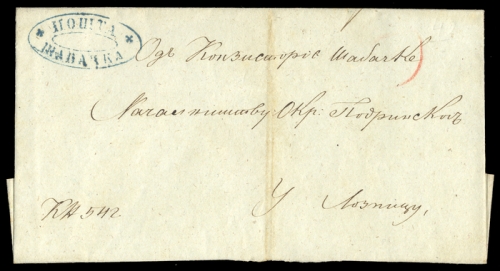 ПОШТА
ШАБАЧКА
Одъ Конзисторіє Шабачке
Началничтву Окр: Подринскогъ
У Лозницу,
КН 542.